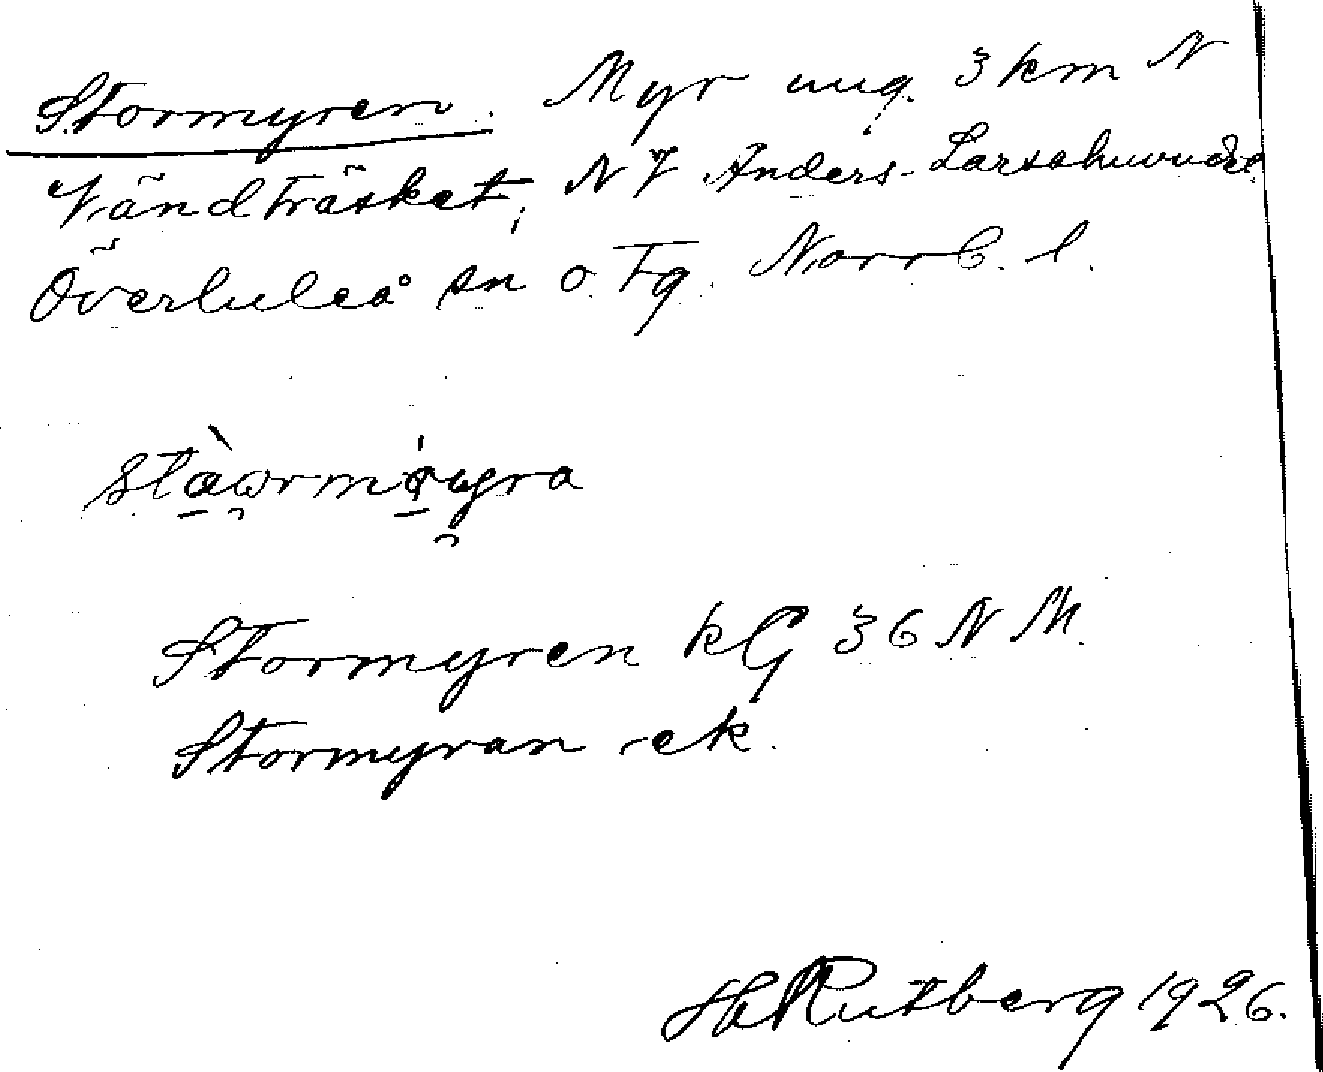 Stormyren. Myr ung. 3 km N
Vändträsket, NV Anders-Larsahuvudet
Överluleå sn o. tg. Norrb. l.
Stormyren kG 36 N M.
Stormyran -ek.
H Rutberg 1926.